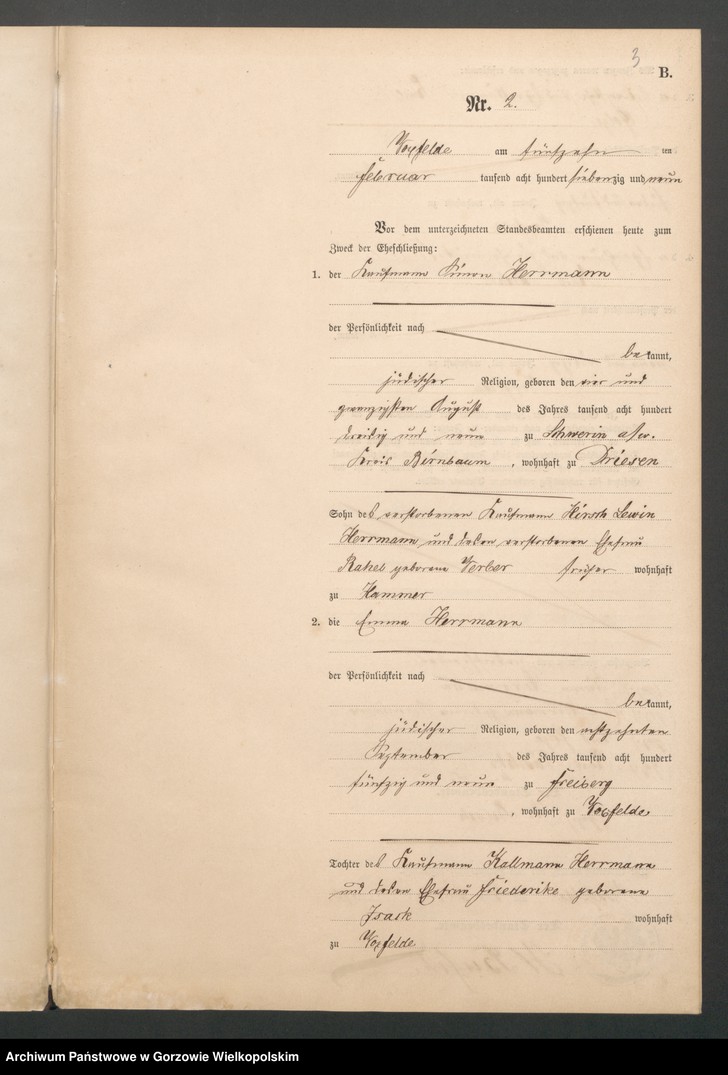 3
B.
Nr. 2.
am fünfzehn ten
Februar tausend acht hundert siebenzig und neun
Vor dem unterzeichneten Standesbeamten erschienen heute zum
Zweck der Eheschließung:
1. der Kaufmann Simon Herrmann
der Persönlichkeit nach
be kannt,
jüdischer Religion, geboren den vier und
zwanzigsten August des Jahres tausend acht hundert
dreißig und neun zu Schwerin a/w.
Kreis Birnbaum, wohnhaft zu Driesen
Sohn des verstorbenen Kaufmann Hirsch Lewin
Herrmann und dessen verstorbenen Ehefrau
Rahel geborene früher wohnhaft
zu Hammer
2. die Emma Herrmann
der Persönlichkeit nach
be kannt,
jüdischer Religion, geboren den achtzehnten
September des Jahres tausend acht hundert
fünfzig und neun zu Freiberg
, wohnhaft zu
Tochter des Kaufmann Kallmann Herrmann
und dessen Ehefrau Friederike geborene
Isack wohnhaft
zu
Archiwum Państwowe w Gorzowie Wielkopolskim